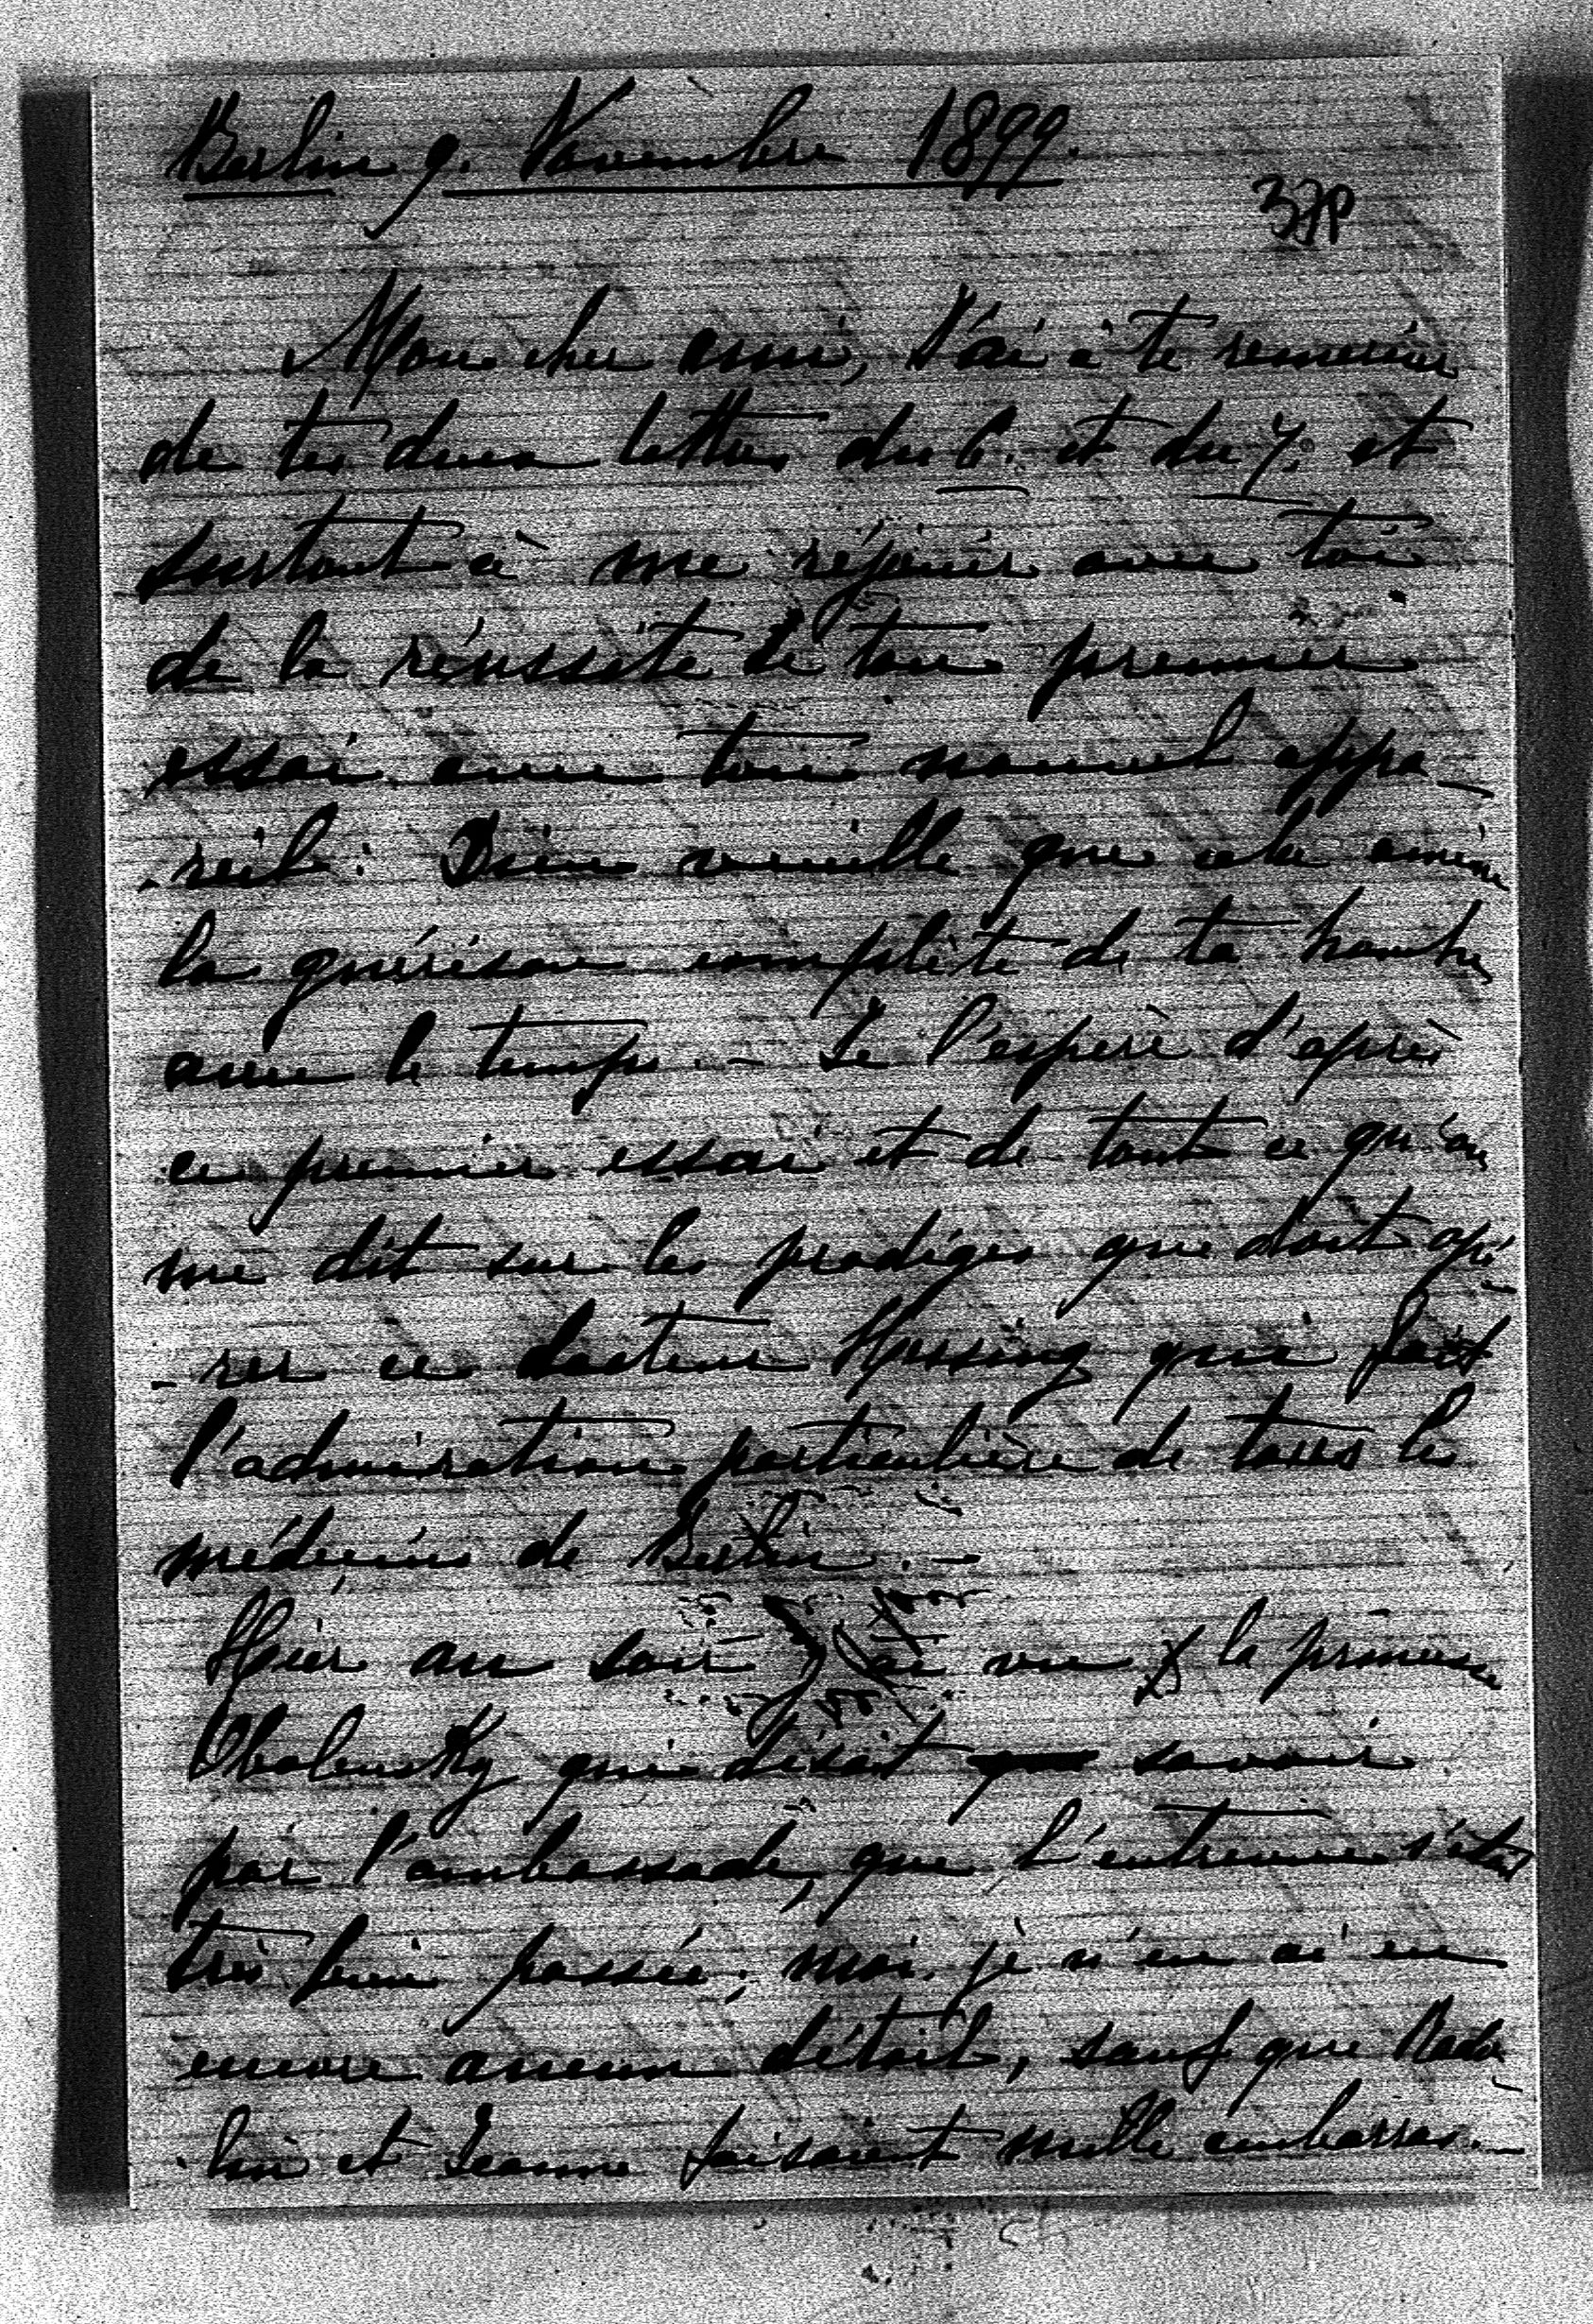 Berlin 9. Novembre 1899.
Mon cher ami, J'ai à te remercier
de tes deux lettres du 6. et du 7. et
surtout à me réjouir avec toi
de la réussite de ton premier
essai avec ton nouvel appa-
-reil. Dieu veuille que cela amène
la guérison complète de ta hanche
avec le temps. - Je l'espère d'après
ce premier essai et de tout ce qu'on
me dit sur les prodiges que doit opé-
-rer ce docteur Hessing qui fait
l'admiration particulière de tous les
médecins de Berlin. -
Hier au soir j'ai vu la princesse
Obolensky qui disait savoir
par l'ambassade, que l'entrevue s'était
très bien passée; moi je n'en ai eu
encore aucun détail, sauf que Rado-
-lin et Jeanne faisaient mille embarras. -